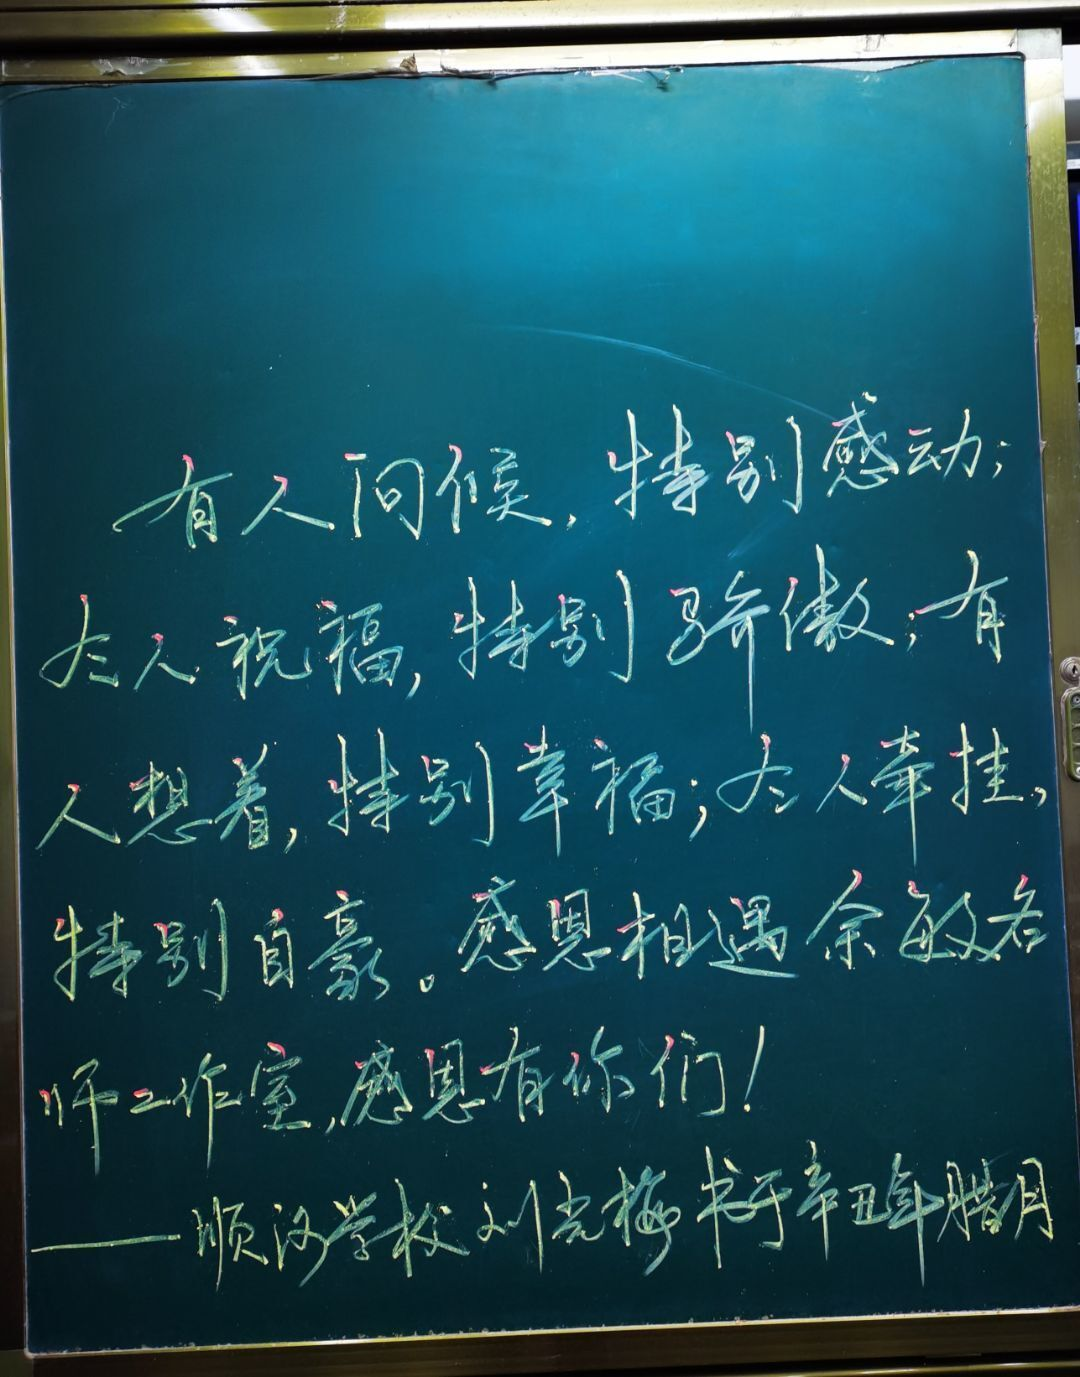 有人问候，特别感动；
有人祝福，特别骄傲；有
人想着，特别幸福；有人牵挂，
特别自豪。感恩相遇余敏名
师工作室，感恩有你们！
——顺河学校刘光梅书于辛丑年腊月